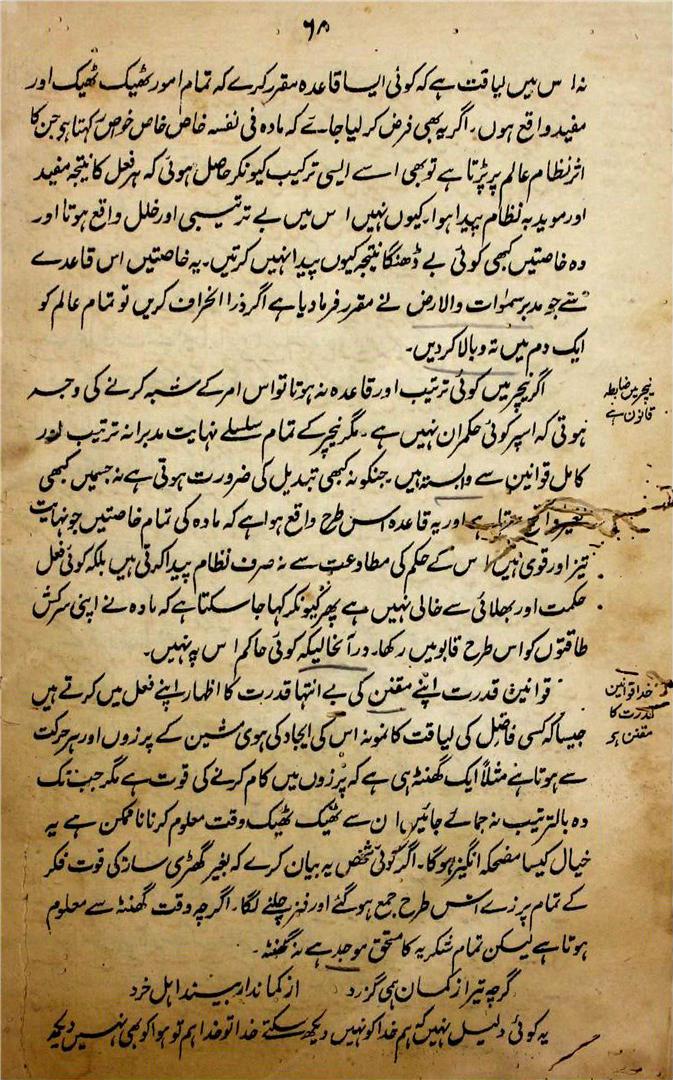 ۶۸
نہ اس میں لیاقت ہے کہ کوئی ایسا قاعدہ مقرر کرے کہ تمام امور ٹھیک ٹھیک اور
مفید واقع ہوں۔ اگر یہ بھی فرض کر لیا جائے کہ مادہ فی نفسہ خاص خاص خواص رکھتا ہو جن کا
اثر نظام عالم پر پڑتا ہے تو بھی اسے ایسی ترکیب کیونکر حاصل ہوئی کہ ہر فعل کا نتیجہ مفید
اور موید بہ نظام پیدا ہوا۔ کیوں نہیں اس میں بے ترتیبی اور خلل واقع ہوتا اور
وہ خاصتیں کبھی کوئی بے ڈھنگا نتیجہ کیوں پیدا نہیں کرتیں۔ یہ خاصتیں اس قاعدے
سے جو مدبر سمٰوات والارض نے مقرر فرما دیا ہے اگر ذرا انحراف کریں تو تمام عالم کو
ایک دم میں تہ و بالا کر دیں۔
نیچر میں ضابطہ
قانون ہے
اگر نیچر میں کوئی ترتیب اور قاعدہ نہ ہوتا تو اس امر کے شبہ کرنے کی وجہ
ہوتی کہ اسپر کوئی حکمران نہیں ہے۔ مگر نیچر کے تمام سلسلے نہایت مدبرانہ ترتیب اور
کامل قوانین سے وابستہ ہیں جنکو نہ کبھی تبدیل کی ضرورت ہوتی ہے نہ جسمیں کبھی
اور یہ قاعدہ اس طرح واقع ہوا ہے کہ مادہ کی تمام خاصتیں جو نہایت
تیز اور قوی ہیں اس کے حکم کی مطاوعت سے نہ صرف نظام پیدا کرتی ہیں بلکہ کوئی فعل
حکمت اور بھلائی سے خالی نہیں ہے پھر کیونکر کہا جا سکتا ہے کہ مادہ نے اپنی سرکش
طاقتوں کو اس طرح قابو میں رکھا۔ درآنحالیکہ کوئی حاکم اس پہ نہیں۔
خدا قوانین
قدرت کا
مقنن ہے
قوانین قدرت اپنے مقنن کی بے انتہا قدرت کا اظہار اپنے فعل میں کرتے ہیں
جیسا کہ کسی فاضل کی لیاقت کا نمونہ اس کی ایجاد کی ہوی مشین کے پرزوں اور ہر حرکت
سے ہوتا ہے مثلاً ایک گھنٹہ ہی ہے کہ پرزوں میں کام کرنے کی قوت ہے مگر جب تک
وہ بالترتیب نہ جمائے جائیں ان سے ٹھیک ٹھیک وقت معلوم کرنا ناممکن ہے یہ
خیال کیسا مضحکہ انگیز ہوگا۔ اگر کوئی شخص یہ بیان کرے کہ بغیر گھڑی ساز کی قوت فکر
کے تمام پرزے اس طرح جمع ہو گئے اور فنر چلنے لگا۔ اگرچہ وقت گھنٹہ سے معلوم
ہوتا ہے لیکن تمام شکریہ کا مستحق موجد ہے نہ گھنٹہ۔
گرچہ تیر از کمان ہمی گزرد از کماندار بیند اہل خرد
یہ کوئی دلیل نہیں کہ ہم خدا کو نہیں دیکھ سکتے خدا تو خدا ہم تو ہوا کو بھی نہیں دیکھ